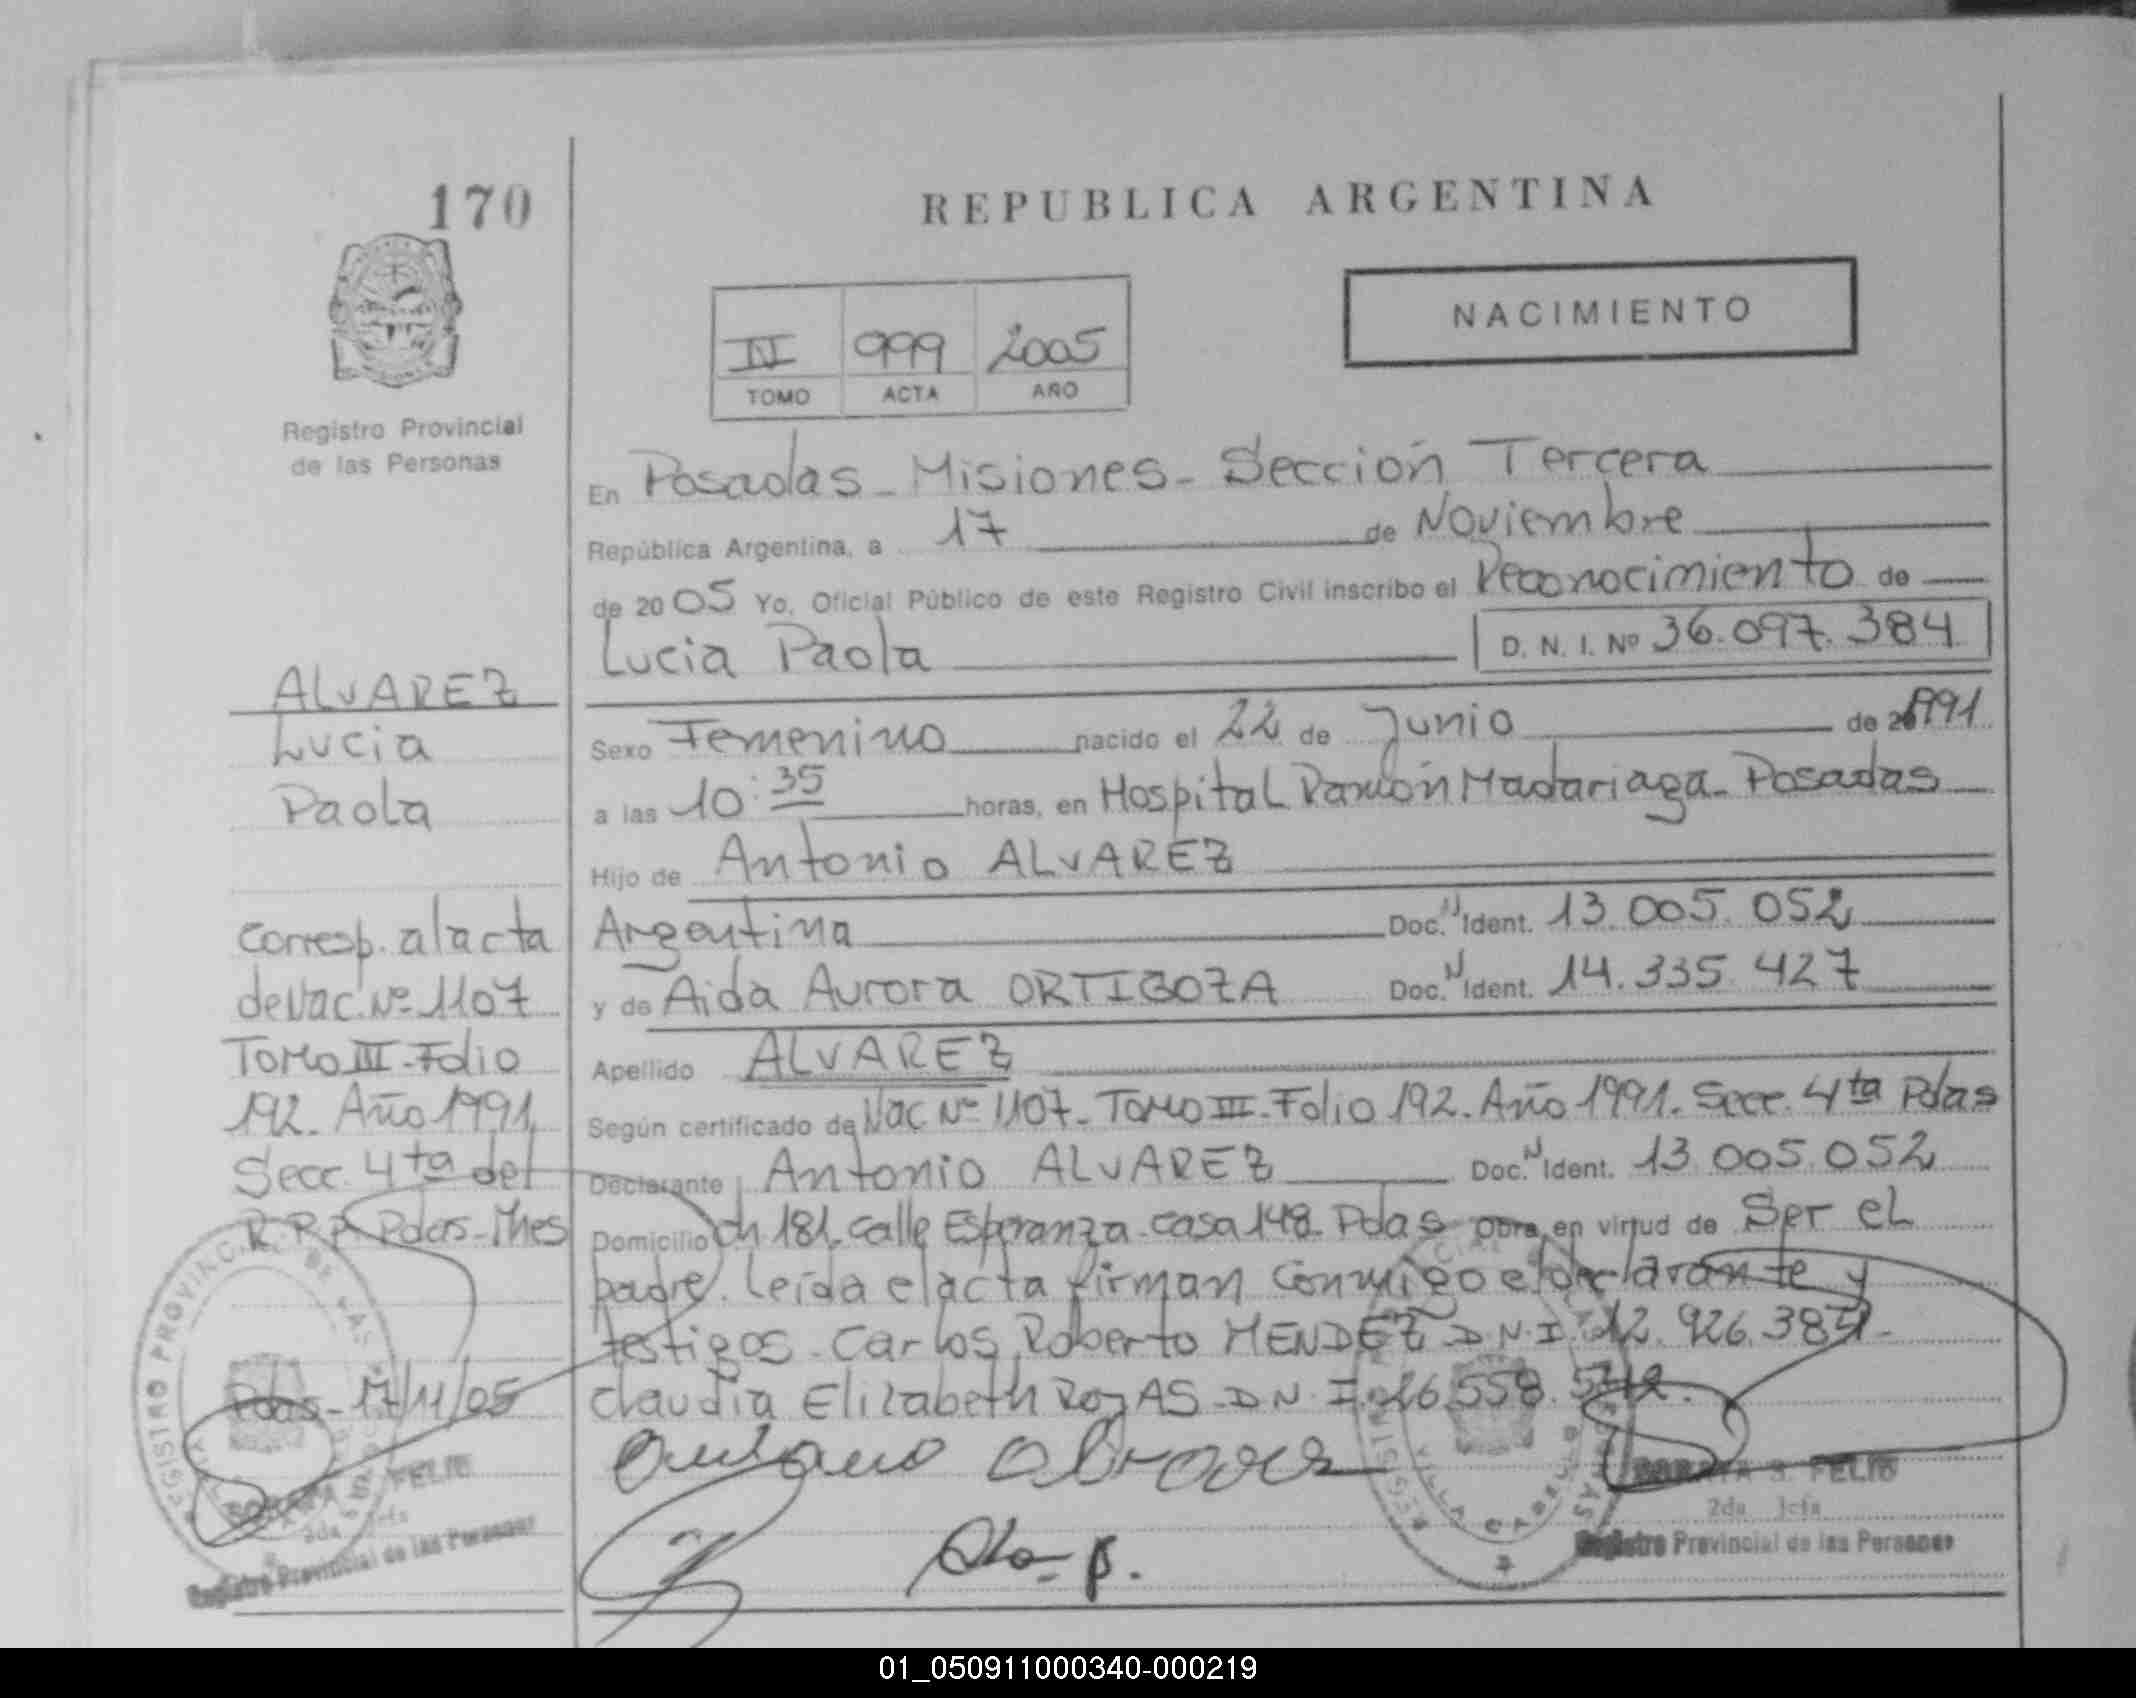 170
REPUBLICA ARGENTINA
NACIMIENTO
IV 999 2005
TOMO ACTA AÑO
Registro Provincial
de las Personas
En Posadas - Misiones - Sección Tercera
República Argentina, a 17 de Noviembre
de 2005 Yo, Oficial Público de este Registro Civil inscribo el Reconocimiento de
Lucia Paola D. N. I. Nº 36.097.384
Sexo Femenino nacido el 22 de Junio de 1991
a las 10:35 horas, en Hospital Ramón Madariaga - Posadas
Hijo de Antonio ALVAREZ
Argentina Doc. N Ident. 13.005.052
y de Aida Aurora ORTIGOZA Doc. N Ident. 14.335.427
Apellido ALVAREZ
Según certificado de Nac Nº 1107 - Tomo III - Folio 192 - Año 1991. Secc. 4ta Pdas
Declarante Antonio ALVAREZ Doc. N Ident. 13.005.052
Domicilio Ch 181. calle Esperanza - casa 148 - Pdas Obra en virtud de Ser el
padre. Leída el acta firman Conmigo el declarante y
testigos - Carlos Roberto MENDEZ D.N.I. 12.926.
Claudia Elizabeth ROJAS - D.N.I. 26.558.
ALVAREZ
Lucia
Paola
Corresp. al acta
de Nac. Nº 1107
Tomo III - Folio
192 - Año 1991
Secc. 4ta del
R.R.P. Pdas - Mnes
Pdas - 17/11/05
SORAYA S. FELIU
2da Jefa
Registro Provincial de las Personas
SORAYA S. FELIU
2da Jefa
Registro Provincial de las Personas
01_050911000340-000219